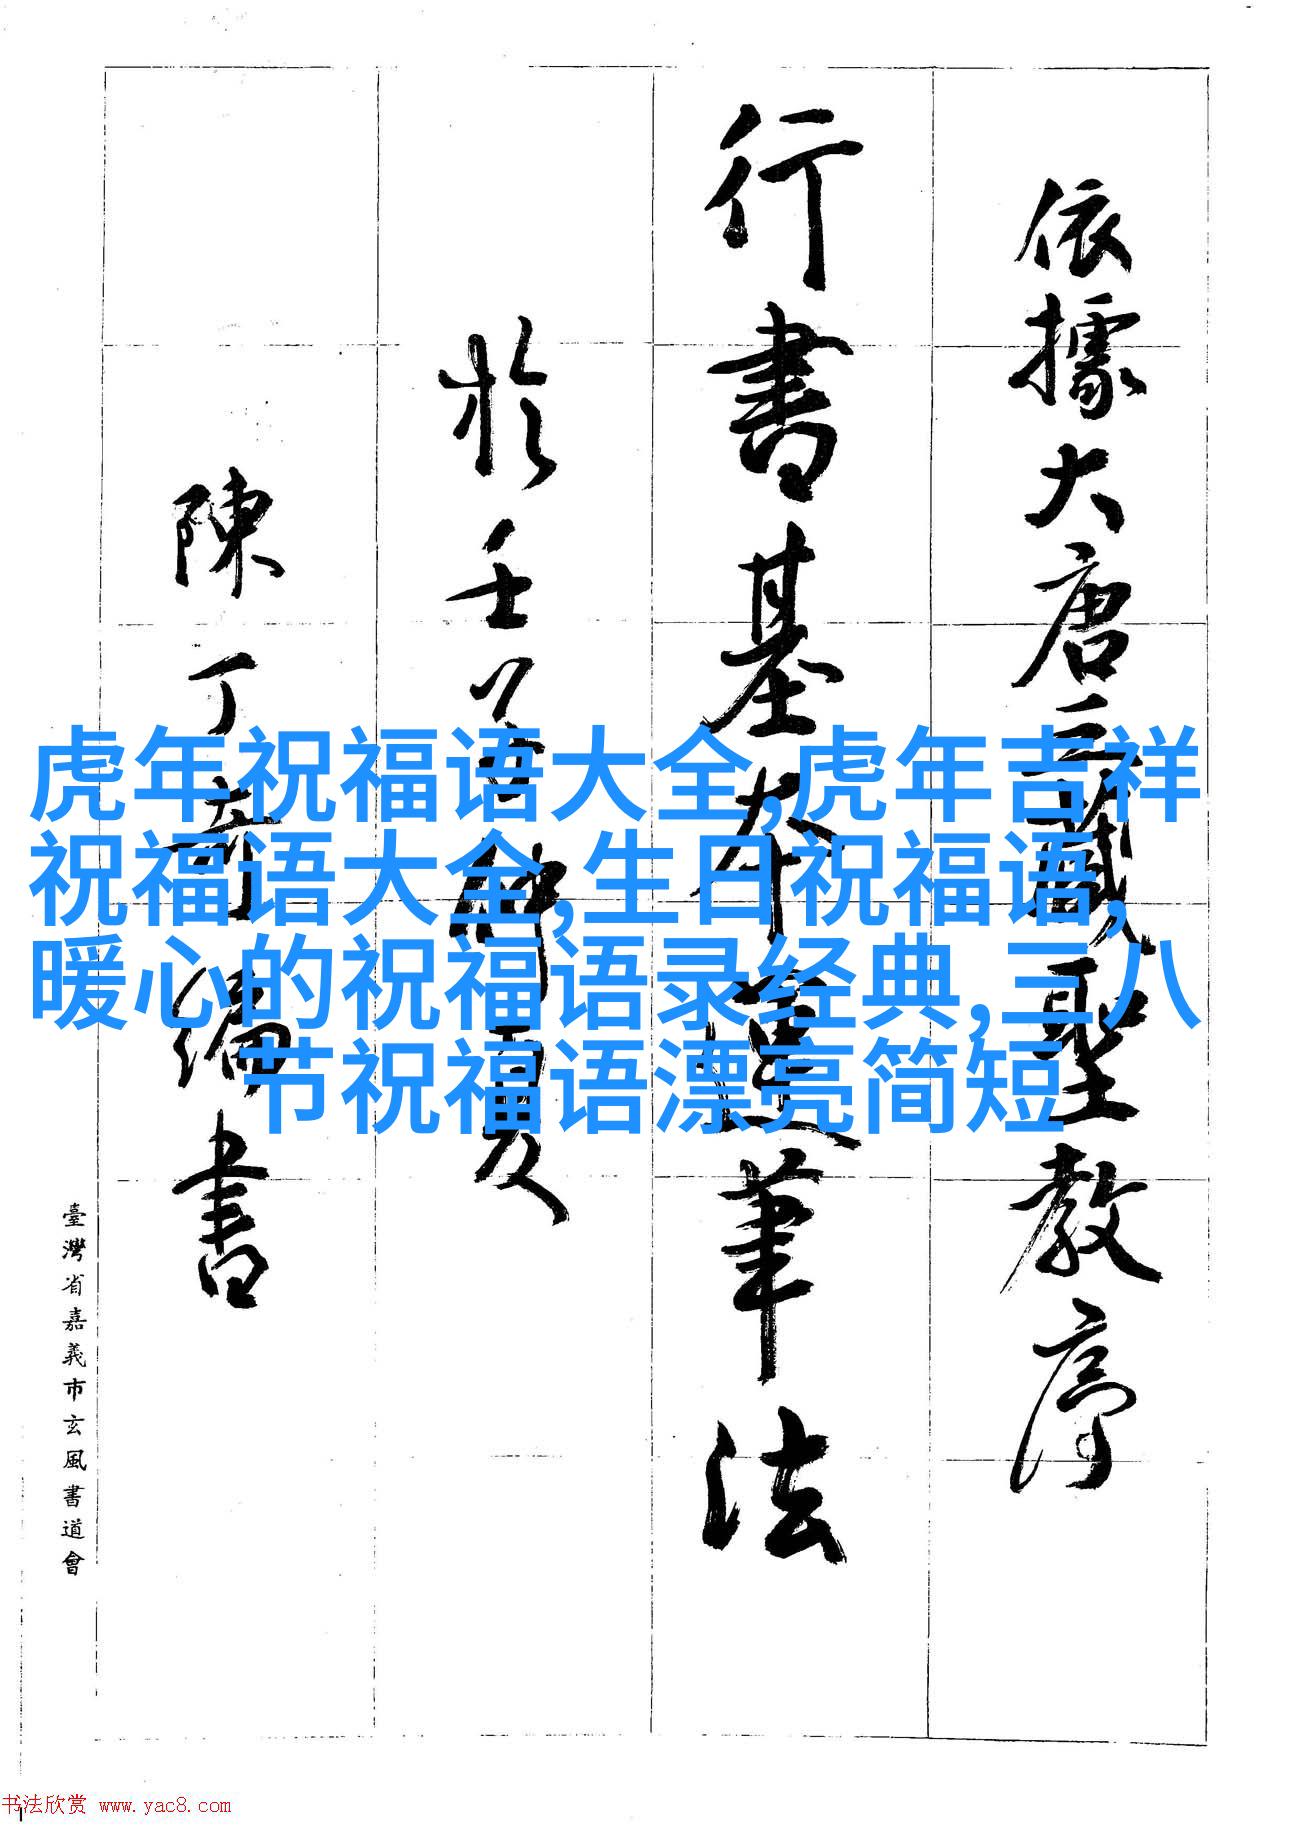 依據大唐三藏聖教序
行書基本運筆法
於壬
仲夏
陳丁奇編書
臺灣省嘉義市玄風書道會
虎年祝福语大全,虎年吉祥
祝福语大全,生日祝福语,
暖心的祝福语录经典,三八
节祝福语漂亮简短
书法欣赏 www.yac8.com